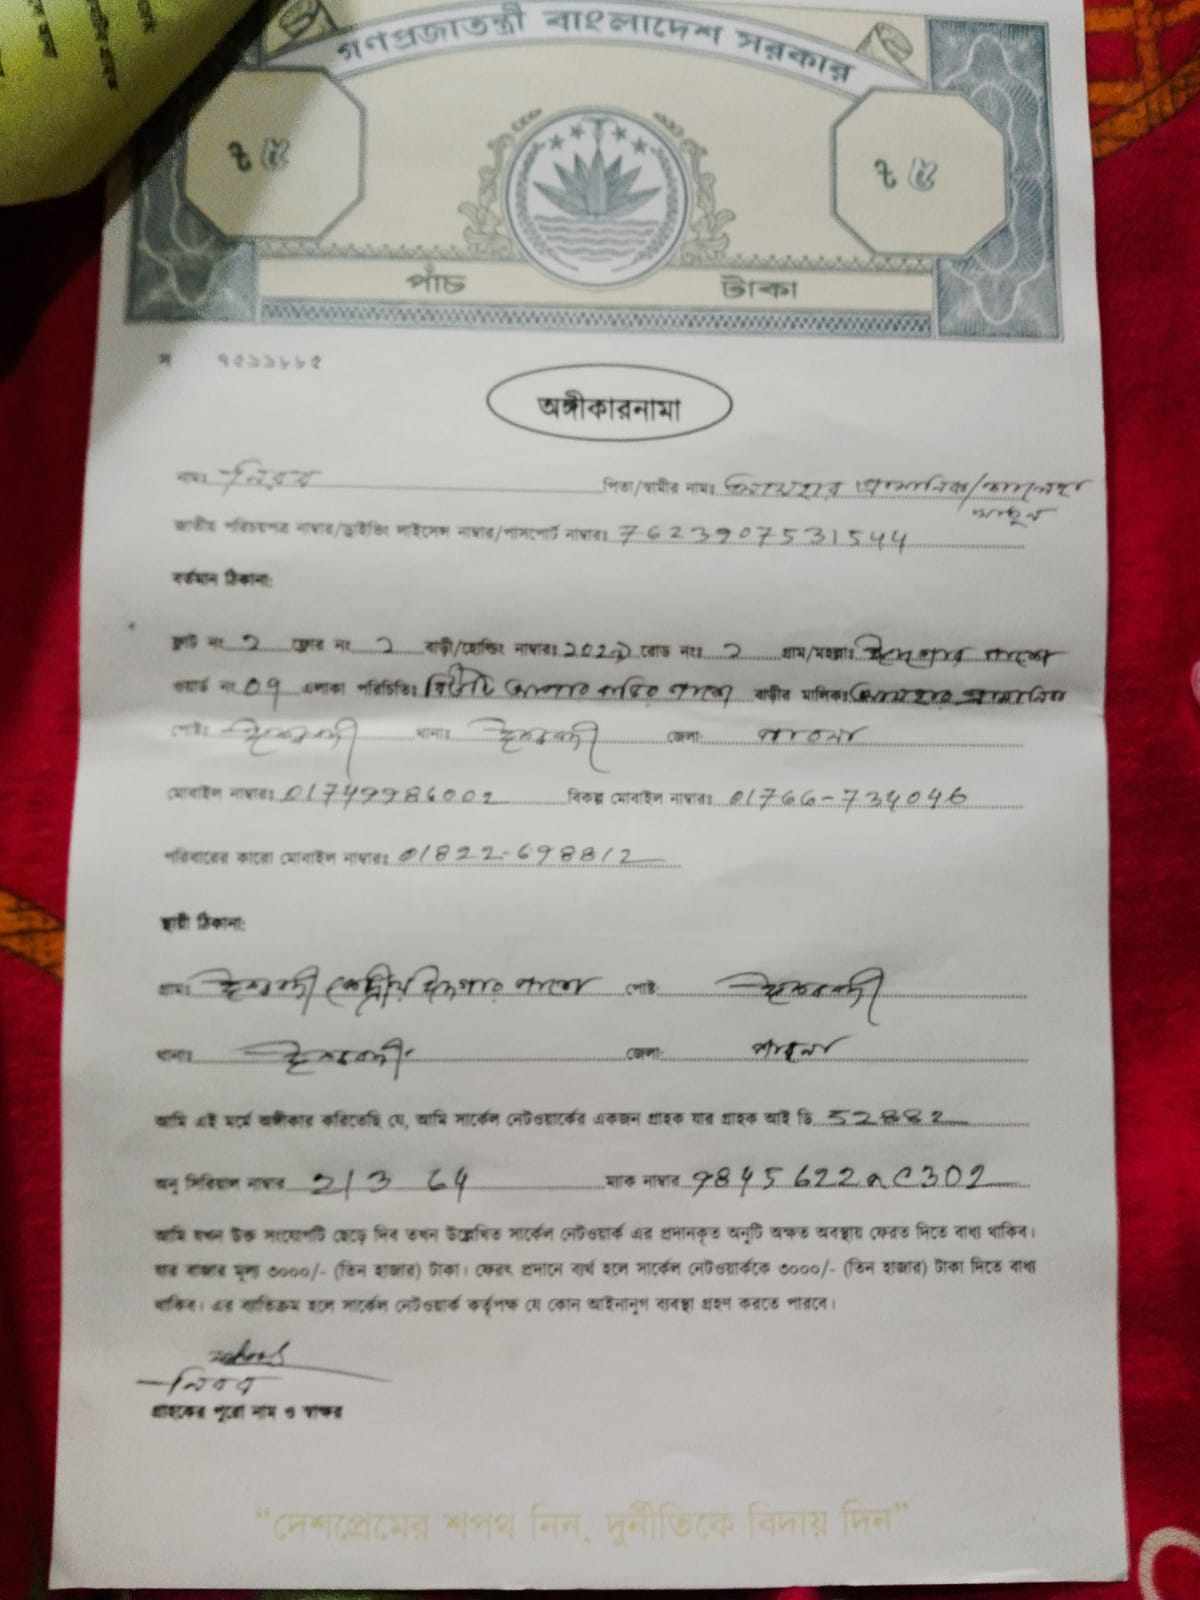 গণপ্রজাতন্ত্রী বাংলাদেশ সরকার
৳ ৫ ৳ ৫
পাঁচ টাকা
ম ৭৫১১৮৮৫
অঙ্গীকারনামা
নামঃ নিরব পিতা/স্বামীর নামঃ
জাতীয় পরিচয়পত্র নাম্বার/ড্রাইভিং লাইসেন্স নাম্বার/পাসপোর্ট নাম্বারঃ 7623907531544
বর্তমান ঠিকানা:
ফ্লাট নং ২ ফ্লোর নং ২ বাড়ী/হোল্ডিং নাম্বারঃ রোড নংঃ ২ গ্রাম/মহল্লাঃ ঈদগার পাশে
ওয়ার্ড নং 09 এলাকা পরিচিতিঃ বাড়ির পাশে বাড়ীর মালিকঃ
পোষ্টঃ ঈশ্বরদী থানাঃ ঈশ্বরদী জেলা: পাবনা
মোবাইল নাম্বারঃ 01749986002 বিকল্প মোবাইল নাম্বারঃ 01766-734046
পরিবারের কারো মোবাইল নাম্বারঃ 01822-698812
স্থায়ী ঠিকানা:
গ্রামঃ ঈশ্বরদী কেন্দ্রীয় ঈদগার পাশে পোষ্ট: ঈশ্বরদী
থানাঃ ঈশ্বরদী জেলা: পাবনা
আমি এই মর্মে অঙ্গীকার করিতেছি যে, আমি সার্কেল নেটওয়ার্কের একজন গ্রাহক যার গ্রাহক আই ডি 52882
অনু সিরিয়াল নাম্বার 213 64 ম্যাক নাম্বার
আমি যখন উক্ত সংযোগটি ছেড়ে দিব তখন উল্লেখিত সার্কেল নেটওয়ার্ক এর প্রদানকৃত অনুটি অক্ষত অবস্থায় ফেরত দিতে বাধ্য থাকিব।
যার বাজার মূল্য ৩০০০/- (তিন হাজার) টাকা। ফেরৎ প্রদানে ব্যর্থ হলে সার্কেল নেটওয়ার্ককে ৩০০০/- (তিন হাজার) টাকা দিতে বাধ্য
থাকিব। এর ব্যতিক্রম হলে সার্কেল নেটওয়ার্ক কর্তৃপক্ষ যে কোন আইনানুগ ব্যবস্থা গ্রহণ করতে পারবে।
নিরব
গ্রাহকের পুরো নাম ও স্বাক্ষর
“দেশপ্রেমের শপথ নিন, দুর্নীতিকে বিদায় দিন”